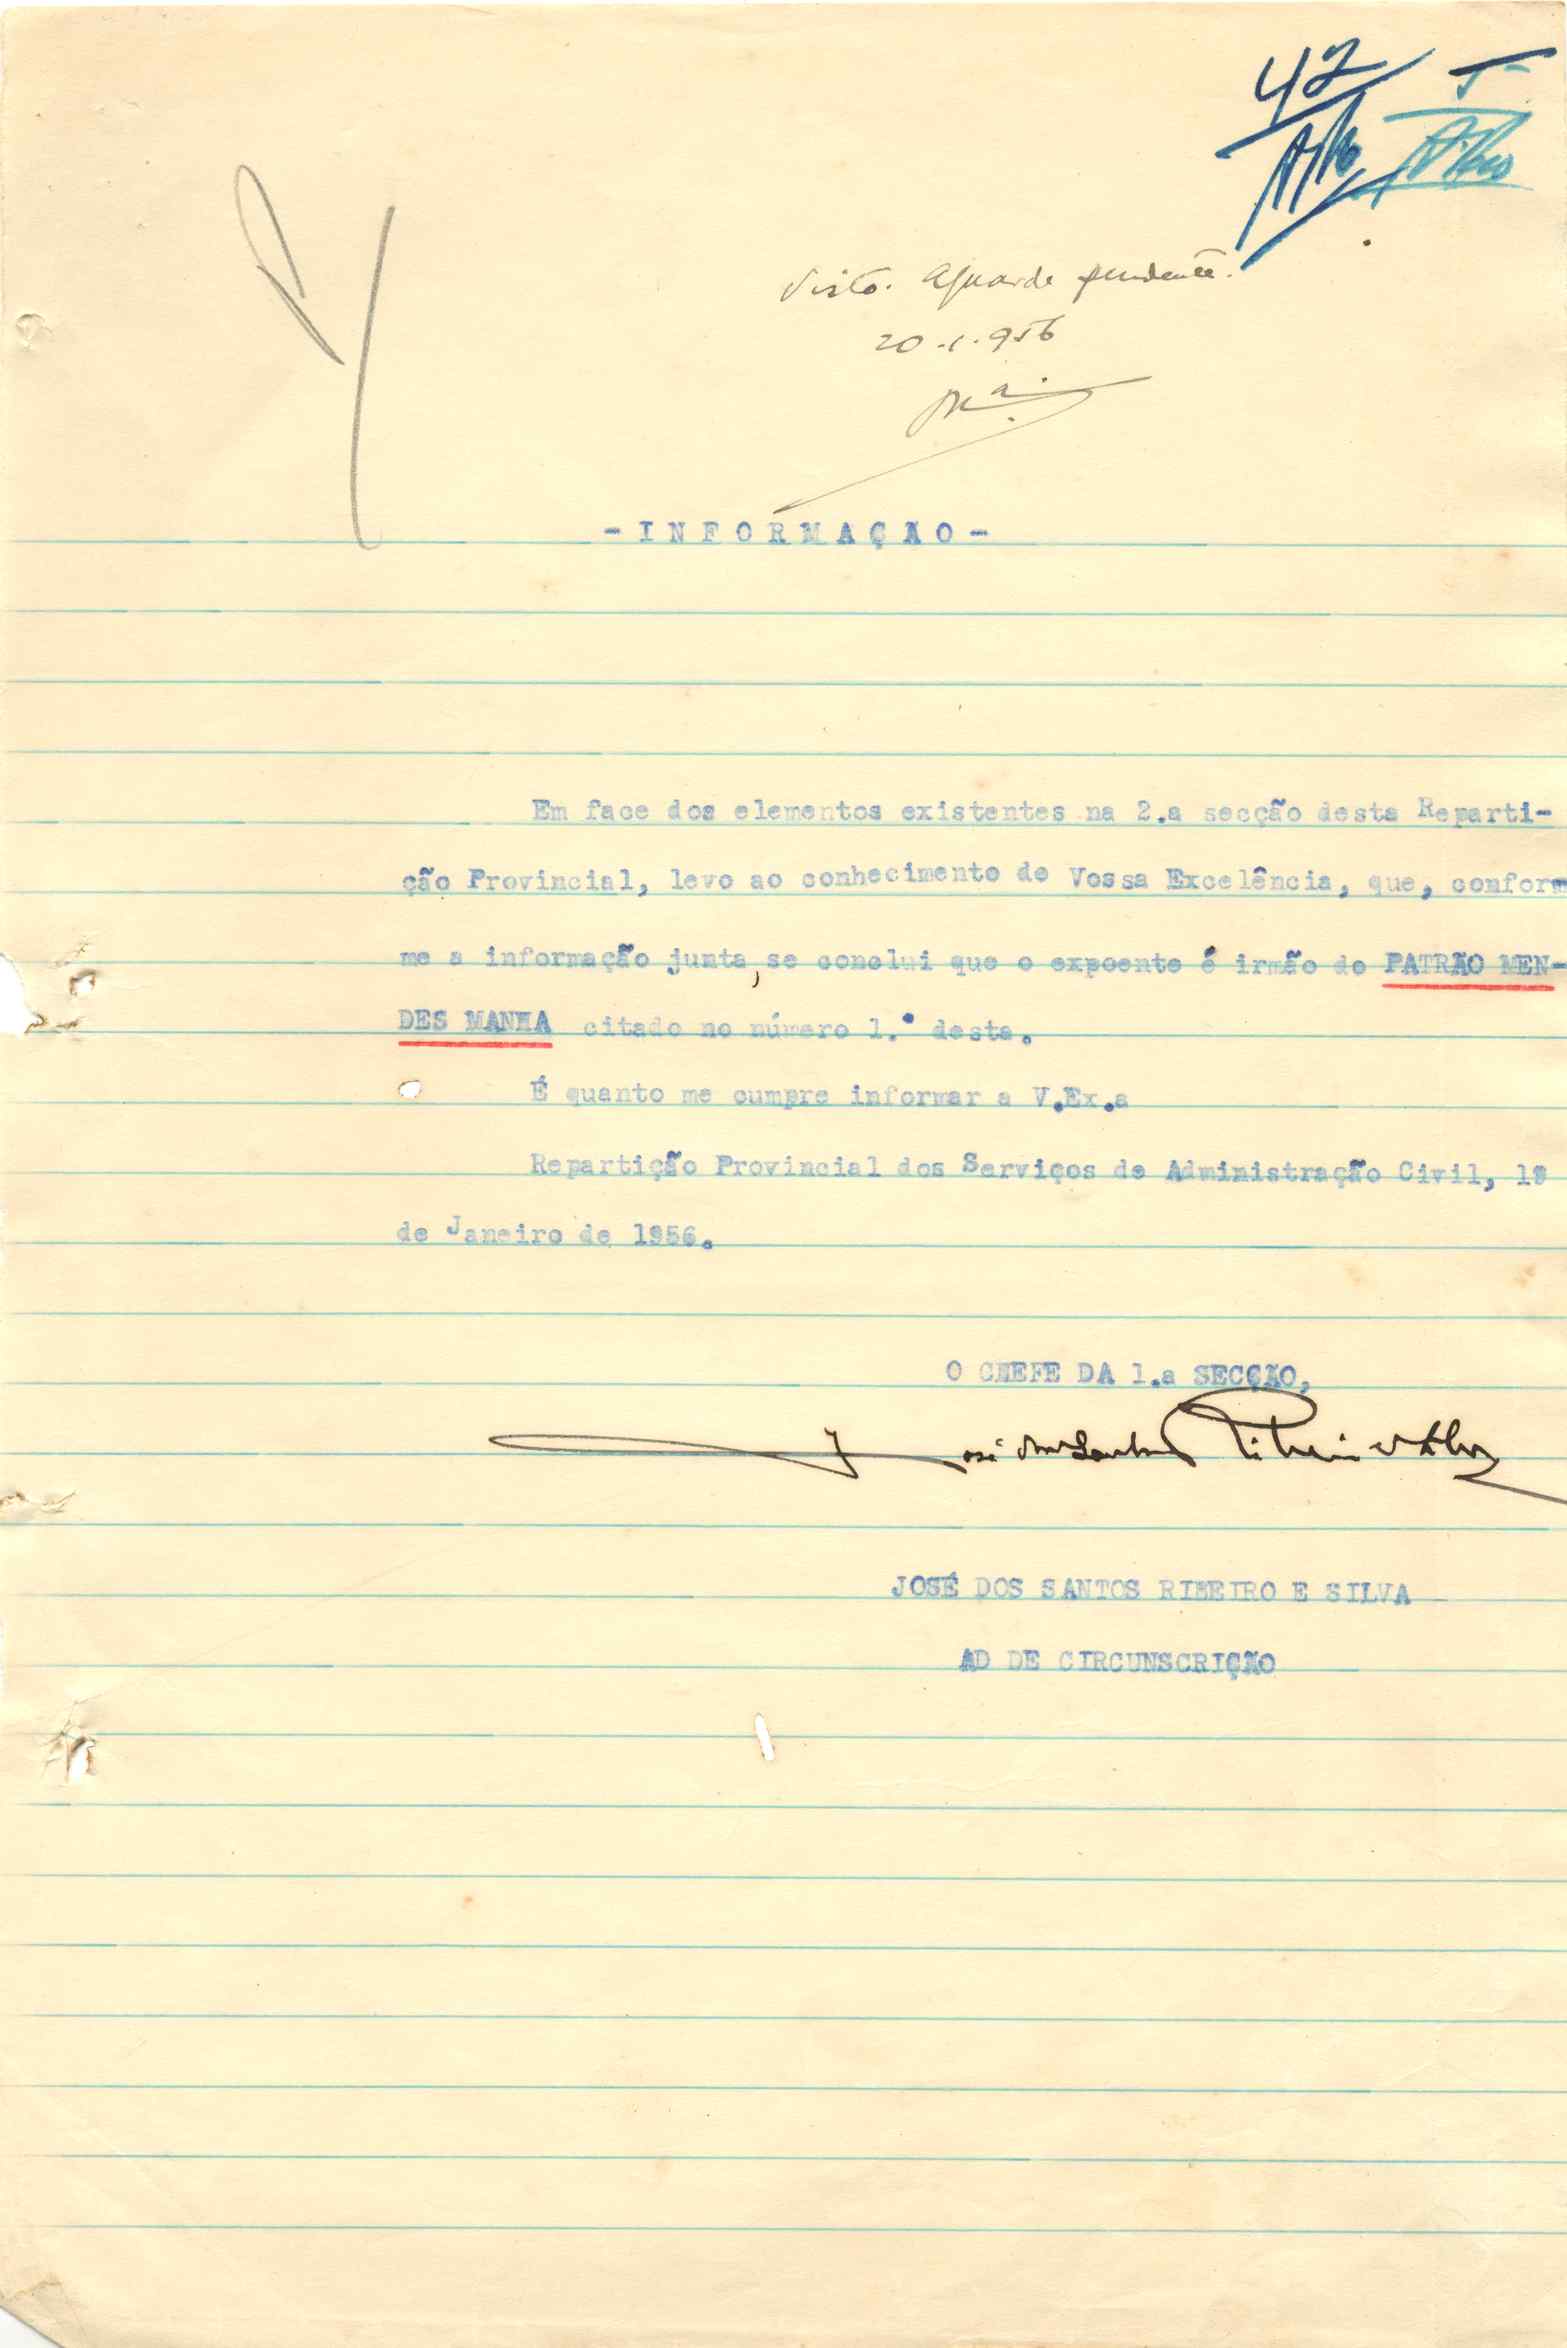 42
Visto. Aguarde pendente.
20.1.956
- I N F O R M A Ç Ã O -
Em face dos elementos existentes na 2.a secção desta Reparti-
ção Provincial, levo ao conhecimento de Vossa Excelência, que, confor
me a informação junta, se conclui que o expoente é irmão de PATRÃO MEN-
DES MANHA citado no número 1.º desta.
É quanto me cumpre informar a V.Ex.a
Repartição Provincial dos Serviços de Administração Civil, 19
de Janeiro de 1956.
O CHEFE DA 1.a SECÇÃO,
José dos Santos Ribeiro e Silva
JOSÉ DOS SANTOS RIBEIRO E SILVA
AD DE CIRCUNSCRIÇÃO